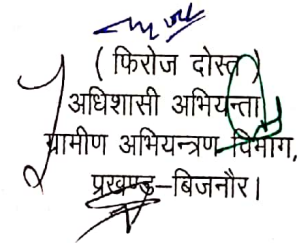 ( फिरोज दोस्त )
अधिशासी अभियन्ता
ग्रामीण अभियन्त्रण विभाग,
प्रखण्ड–बिजनौर।